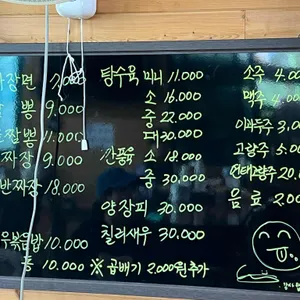 짜장면 7.000
짬뽕 9.000
짬뽕 11.000
짜장 9.000
반짜장 18.000
볶음밥 10.000
10.000
탕수육 미니 11.000
소 16.000
중 22.000
대 30.000
깐풍육 소 18.000
중 30.000
양장피 30.000
칠리새우 30.000
※ 곱배기 2.000원 추가
소주 4.000
맥주 4.000
이과두주 3.
고량주 5.
연태고량주 20.
음료 2.00